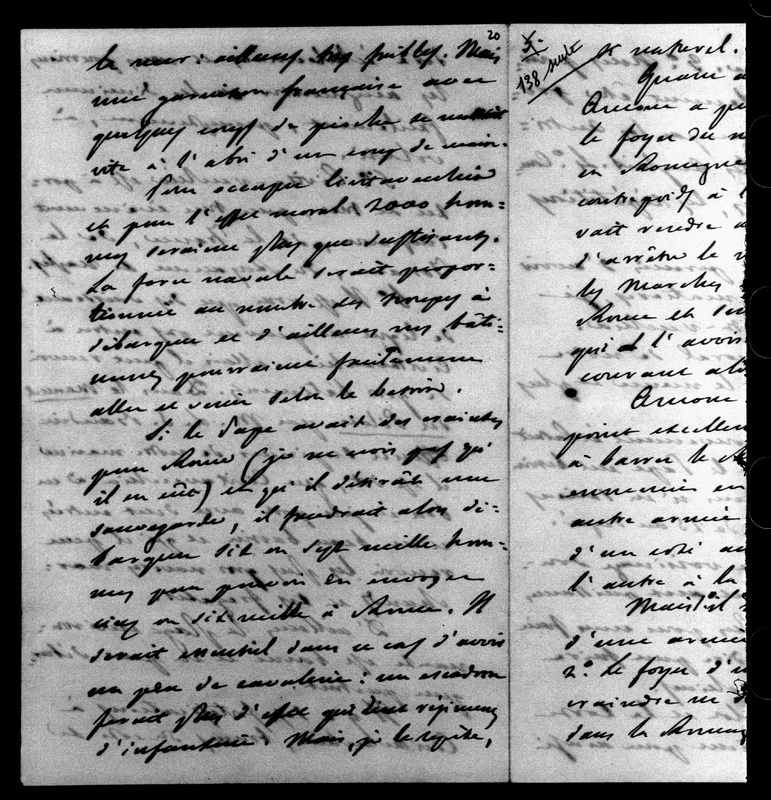 20
le mur : ailleurs très faibles. Mais
une garnison française avec
quelques coups de pioche se mettrait
vite à l'abri d'un coup de main.
Pour occuper l'intérieur
et pour l'effet moral 2000 hom=
mes seraient plus que suffisants.
La force navale serait propor=
tionnée au nombre des troupes à
débarquer et d'ailleurs nos bâti=
ments pourraient facilement
aller et venir selon le besoin.
Si le Pape avait des craintes
pour Rome (je ne crois pas qu'
il en eût) et qu'il désirât une
sauvegarde, il faudrait alors dé=
barquer six ou sept mille hom=
mes pour pouvoir en envoyer
cinq ou six mille à Rome. Il
serait essentiel dans ce cas d'avoir
un peu de cavalerie : un escadron
ferait plus d'effet qu'un régiment
d'infanterie. Mais, je le répète,
138 suite
et naturel.
Quant a
Ancone a
le foyer du
en Romagne
contrepoids à l
vait rendre
d'arrêter le
les Marches
Rome et
qui l'avoi
courant
Ancone
point excellen
à barrer le
ennemie en
autre armée
d'un coté au
l'autre à la
Mais il
d'une armée
2° le foyer d'u
craindre ne
dans la Romag